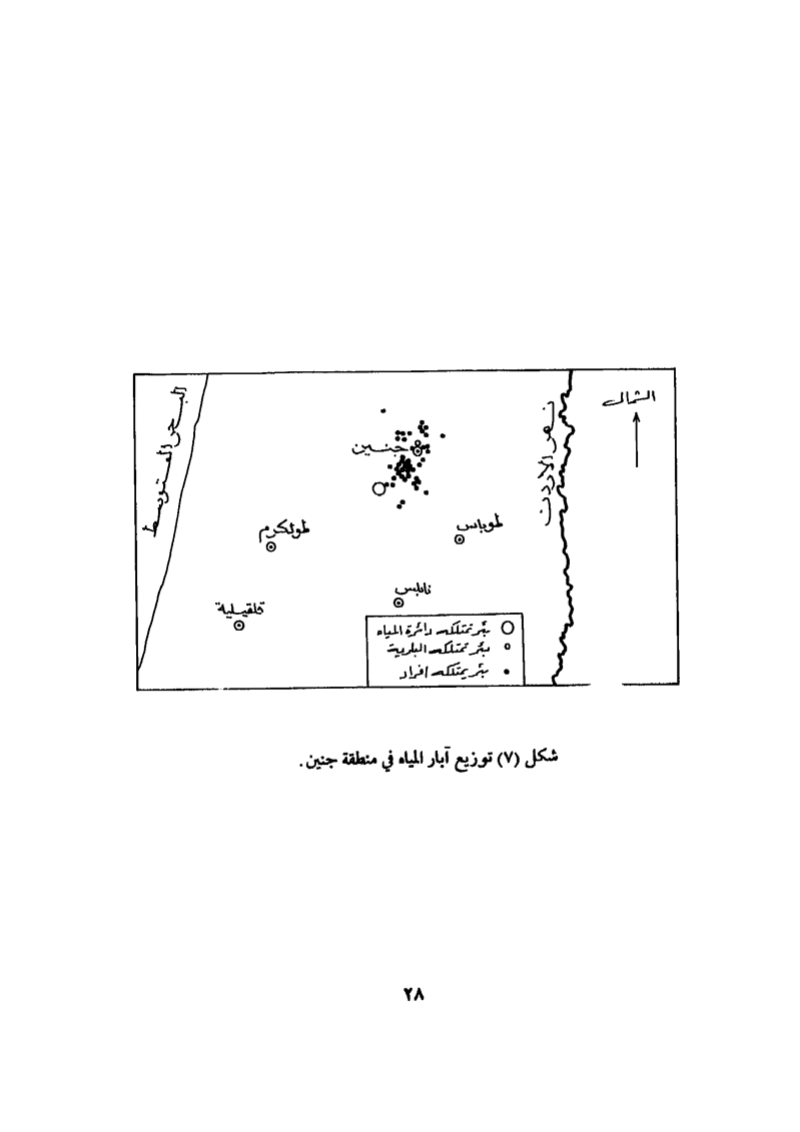 الشمال
نهر الاردن
البحر المتوسط
جنين
طوباس
طولكرم
نابلس
قلقيلية
بئر تمتلكه دائرة المياه
بئر تمتلكه البلدية
بئر يمتلكه افراد
شكل (٧) توزيع آبار المياه في منطقة جنين.
٢٨